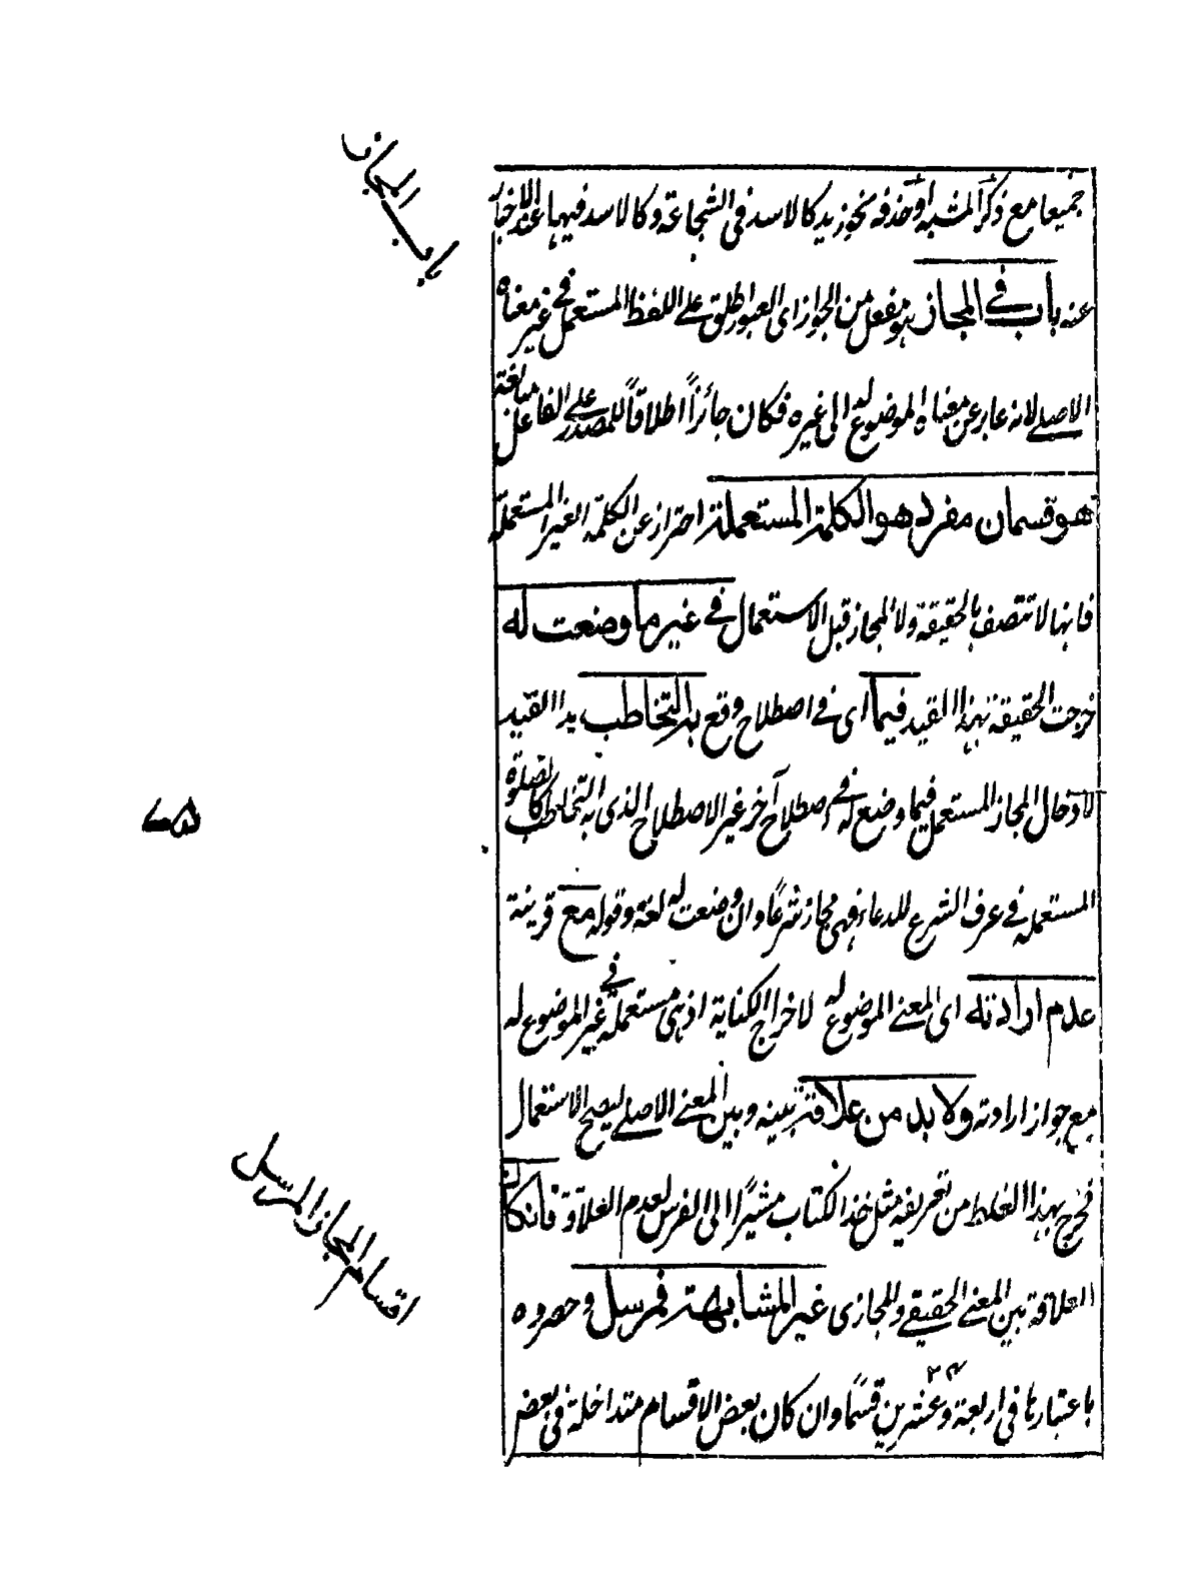 باب المجاز
جميعا مع ذكر المشبه او حذفه نحو زيد كالاسد فى الشجاعة و كالاسد فيها عند الاخبار
عنه باب فے المجاز هو مفعل من الجواز اى العبور اطلق علے اللفظ المستعمل فے غير معناه
الاصلے لانه عابر عن معناه الموضوع له الى غيره فكان جائزاً اطلاقاً للمصدر علے الفاعل مبالغة
هو قسمان مفرد هو الكلمة المستعملة احتراز عن الكلمة الغير المستعملة
فانها لا تتصف بالحقيقة ولا المجاز قبل الاستعمال فے غير ما وضعت له
خرجت الحقيقة بهذا القيد فيما اى فے اصطلاح وقع به التخاطب بهذا القيد
لادخال المجاز المستعمل فيما وضع له فے اصطلاح آخر غير الاصطلاح الذى به التخاطب كالصلوة
المستعمله فے عرف الشرع للدعاء فهى مجاز شرعًا وان وضعت له لغة وقوله مع قرينة
عدم ارادته اى المعنے الموضوع له لاخراج الكناية اذ هى مستعملة فے غير الموضوع له
مع جواز ارادته ولا بد من علاقة بينه وبين المعنے الاصلے ليصح الاستعمال
فخرج بهذا الغلط من تعريفه مثل خذ الكتاب مشيرًا الى الفرس لعدم العلاقة فان كان
العلاقة بين المعنے الحقيقے والمجازى غير المشابهة فمرسل وحصروه
باعتبارها فى اربعة وعشرين قسمًا وان كان بعض الاقسام متداخلة فى بعض
۲۴
۷۵
اقسام المجاز المرسل